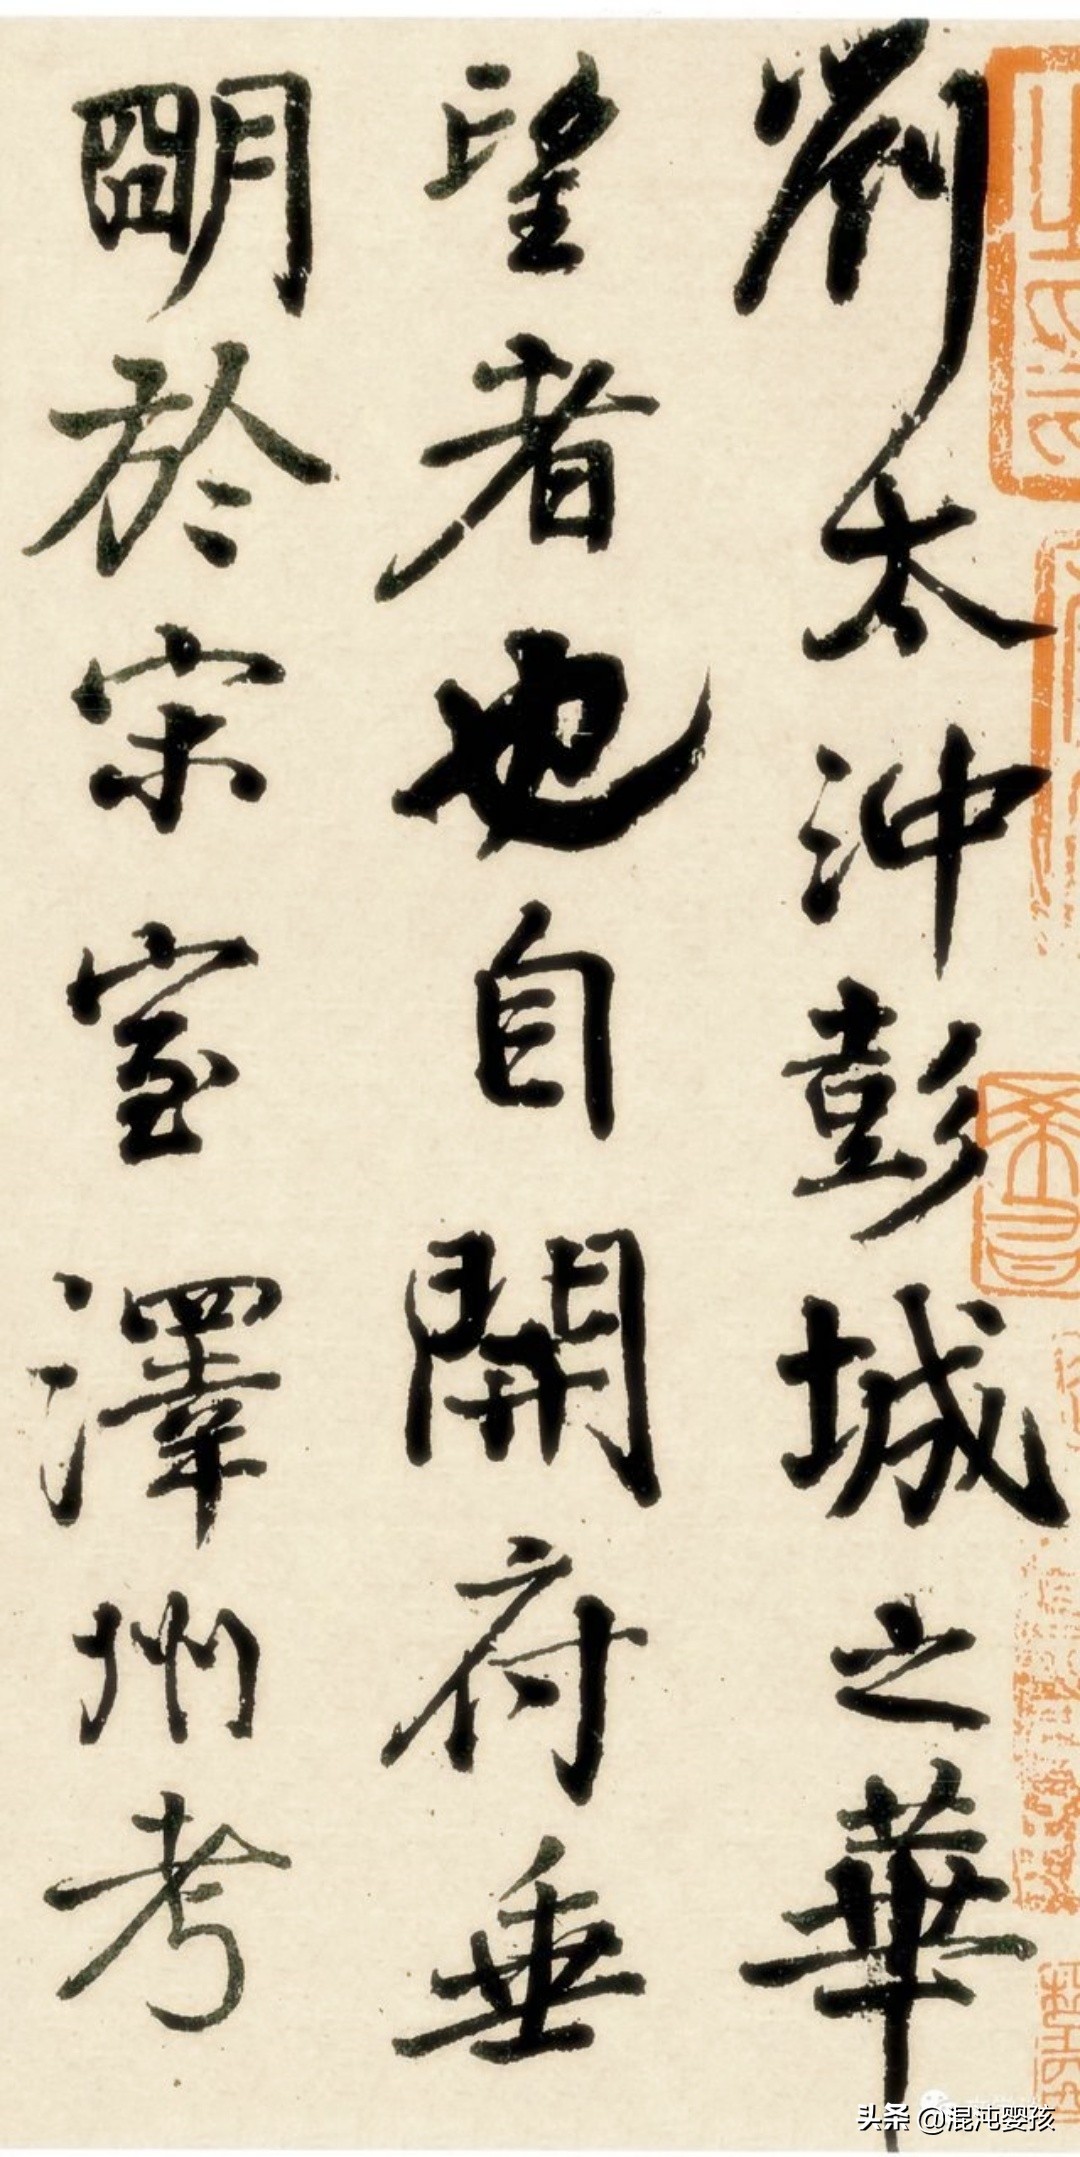 劉太沖彭城之華
望者也自開府垂
明於宋室澤州考
头条 @混沌婴孩